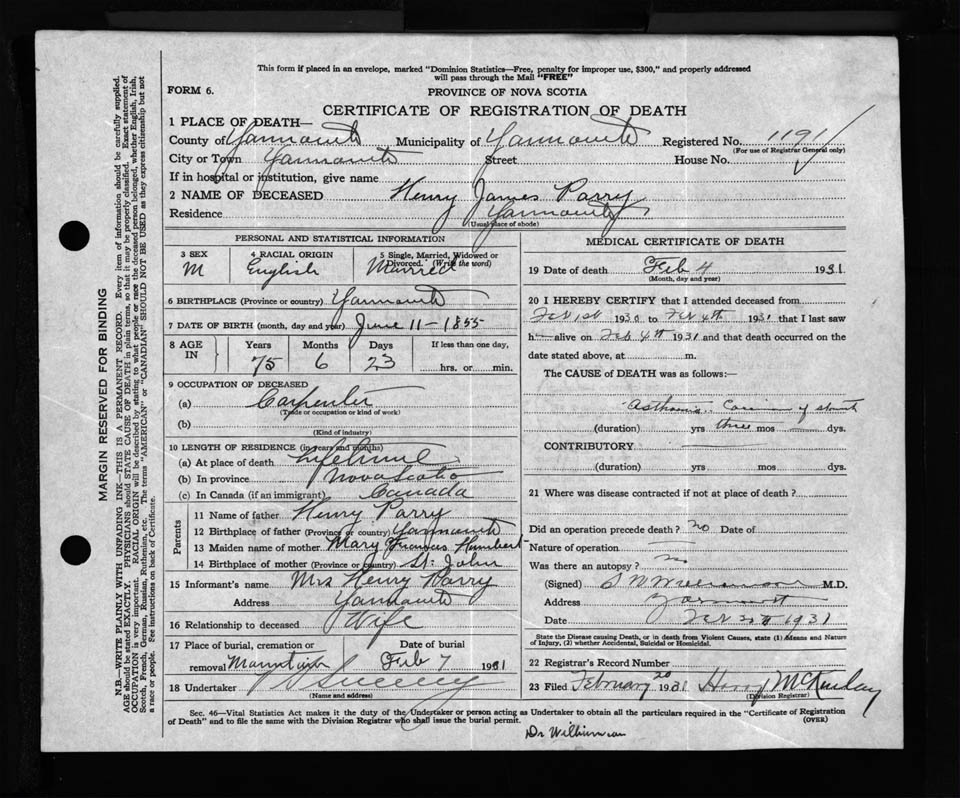 This form if placed in an envelope, marked "Dominion Statistics—Free, penalty for improper use, $300," and properly addressed
will pass through the Mail "FREE"
FORM 6.
PROVINCE OF NOVA SCOTIA
CERTIFICATE OF REGISTRATION OF DEATH
1 PLACE OF DEATH—
County of Yarmouth Municipality of Yarmouth Registered No. 119
(For use of Registrar General only)
City or Town Yarmouth Street House No.
If in hospital or institution, give name
2 NAME OF DECEASED Henry James Parry
Residence Yarmouth
(Usual place of abode)
PERSONAL AND STATISTICAL INFORMATION
3 SEX 4 RACIAL ORIGIN 5 Single, Married, Widowed or
Divorced. (Write the word)
M English Married
6 BIRTHPLACE (Province or country) Yarmouth
7 DATE OF BIRTH (month, day and year) June 11-1855
8 AGE IN Years Months Days If less than one day,
75 6 23 hrs. or min.
9 OCCUPATION OF DECEASED
(a) Carpenter
(Trade or occupation or kind of work)
(b)
(Kind of industry)
10 LENGTH OF RESIDENCE (in years and months)
(a) At place of death Lifetime
(b) In province Nova Scotia
(c) In Canada (if an immigrant) Canada
Parents
11 Name of father Henry Parry
12 Birthplace of father (Province or country) Yarmouth
13 Maiden name of mother Mary Frances
14 Birthplace of mother (Province or country) St. John
15 Informant's name Mrs Henry Parry
Address Yarmouth
16 Relationship to deceased Wife
17 Place of burial, cremation or Date of burial
removal Mountain Feb 7 1931
18 Undertaker Sweeny
(Name and address)
MEDICAL CERTIFICATE OF DEATH
19 Date of death Feb 4 1931
(Month, day and year)
20 I HEREBY CERTIFY that I attended deceased from
1930 to Feb 4th 1931 that I last saw
h alive on Feb 4th 1931 and that death occurred on the
date stated above, at m.
The CAUSE of DEATH was as follows:—
(duration) yrs three mos — dys.
CONTRIBUTORY
(duration) yrs mos dys.
21 Where was disease contracted if not at place of death?
Did an operation precede death? no Date of
Nature of operation
Was there an autopsy? no
(Signed) M.D.
Address Yarmouth
Date Feb 1931
State the Disease causing Death, or in death from Violent Causes, state (1) Means and Nature
of Injury, (2) whether Accidental, Suicidal or Homicidal.
22 Registrar's Record Number
23 Filed February 20 1931 McKinlay
(Division Registrar)
Sec. 46—Vital Statistics Act makes it the duty of the Undertaker or person acting as Undertaker to obtain all the particulars required in the "Certificate of Registration
of Death" and to file the same with the Division Registrar who shall issue the burial permit. (OVER)
Dr
MARGIN RESERVED FOR BINDING
N.B.—WRITE PLAINLY WITH UNFADING INK—THIS IS A PERMANENT RECORD. Every item of information should be carefully supplied.
AGE should be stated EXACTLY. PHYSICIANS should STATE CAUSE OF DEATH in plain terms, so that it may be properly classified. Exact statement of
OCCUPATION is very important. RACIAL ORIGIN will be described by stating to what people or race the deceased person belonged, whether English, Irish,
Scotch, French, German, Russian, Ruthenian, etc. The terms "AMERICAN" or "CANADIAN" SHOULD NOT BE USED as they express citizenship but not
a race or people. See instructions on back of Certificate.